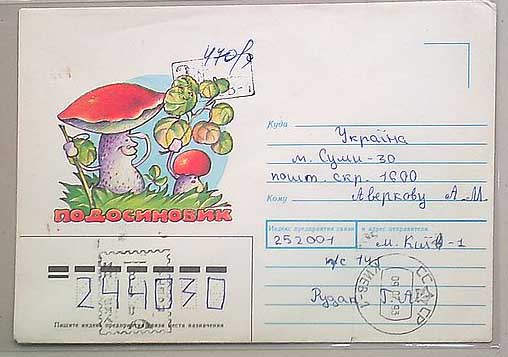 470/я
Куда
Україна
м. Суми-30
пошт. скр. 1600
Кому
Аверкову А.М
ПОДОСИНОВИК
Индекс предприятия связи и адрес отправителя
252001
м. Київ-1
п/с
Рудан
КИЕВ-1
СССР
244030
Пишите индекс предприятия связи места назначения